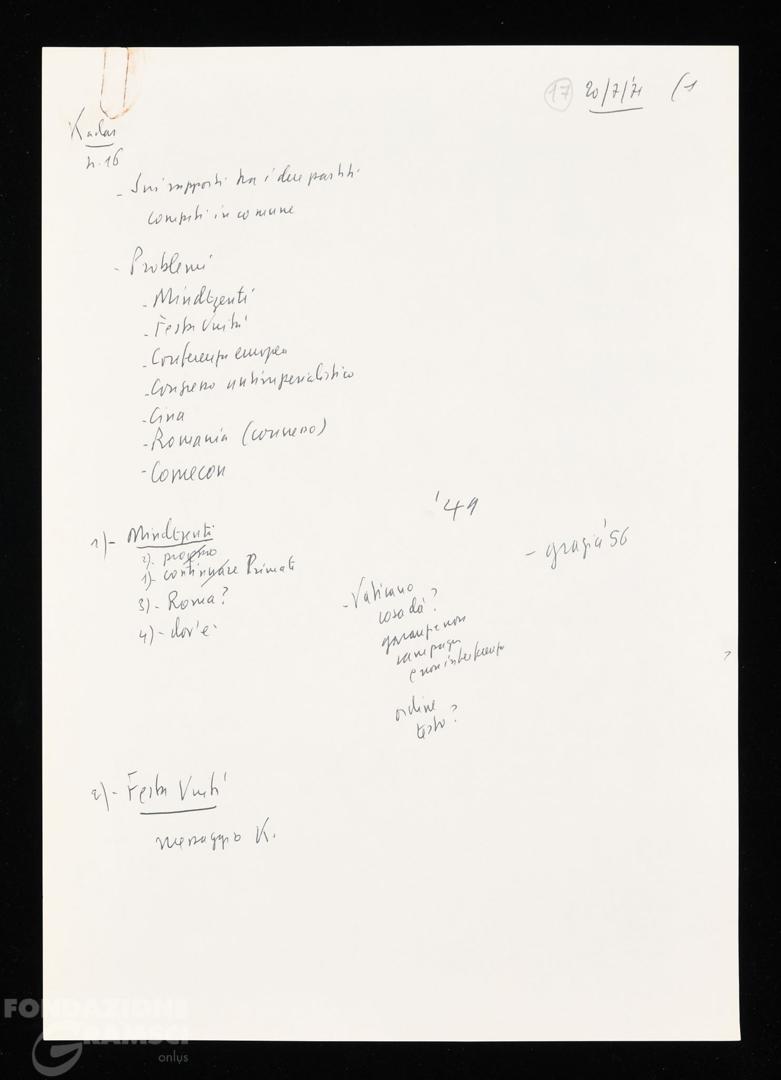 17 20/7/71 (1
Kadar
h. 16
- Sui rapporti tra i due partiti
compiti in comune
- Problemi
- Mindtzenti
- Festa Unità
- Conferenza europea
- Congresso antimperialistico
- Cina
- Romania (connesso)
- Comecon
'49
1)- Mindtzenti
- grazia '56
2)-
1)- continuare Primate
3)- Roma?
4)- dov'è
- Vaticano
cosa dà?
garanzie non
campagna
e non interferenze
?
ordine
testo?
2)- Festa Unità
messaggio K.
FONDAZIONE
GRAMSCI
onlus